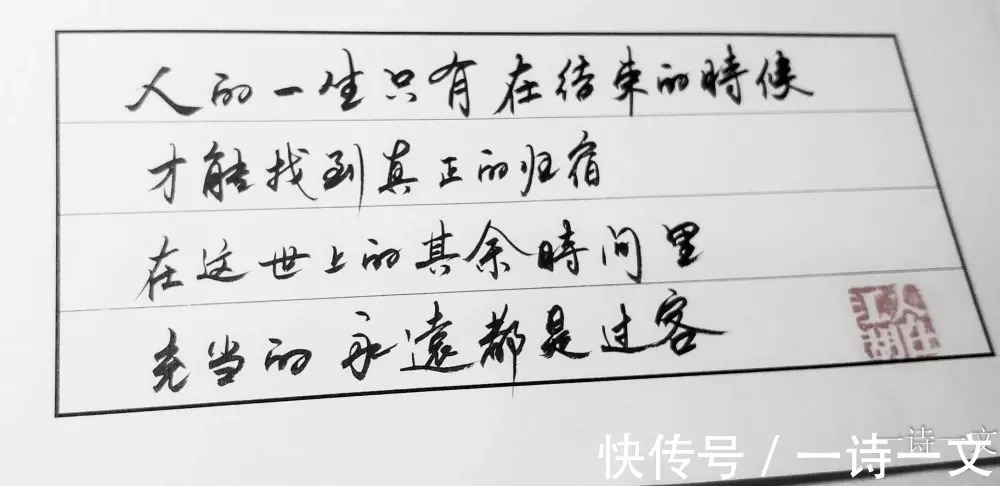 人的一生只有在结束的時候
才能找到真正的归宿
在这世上的其余時间里
充当的永遠都是过客
一诗一文
快传号/一诗一文